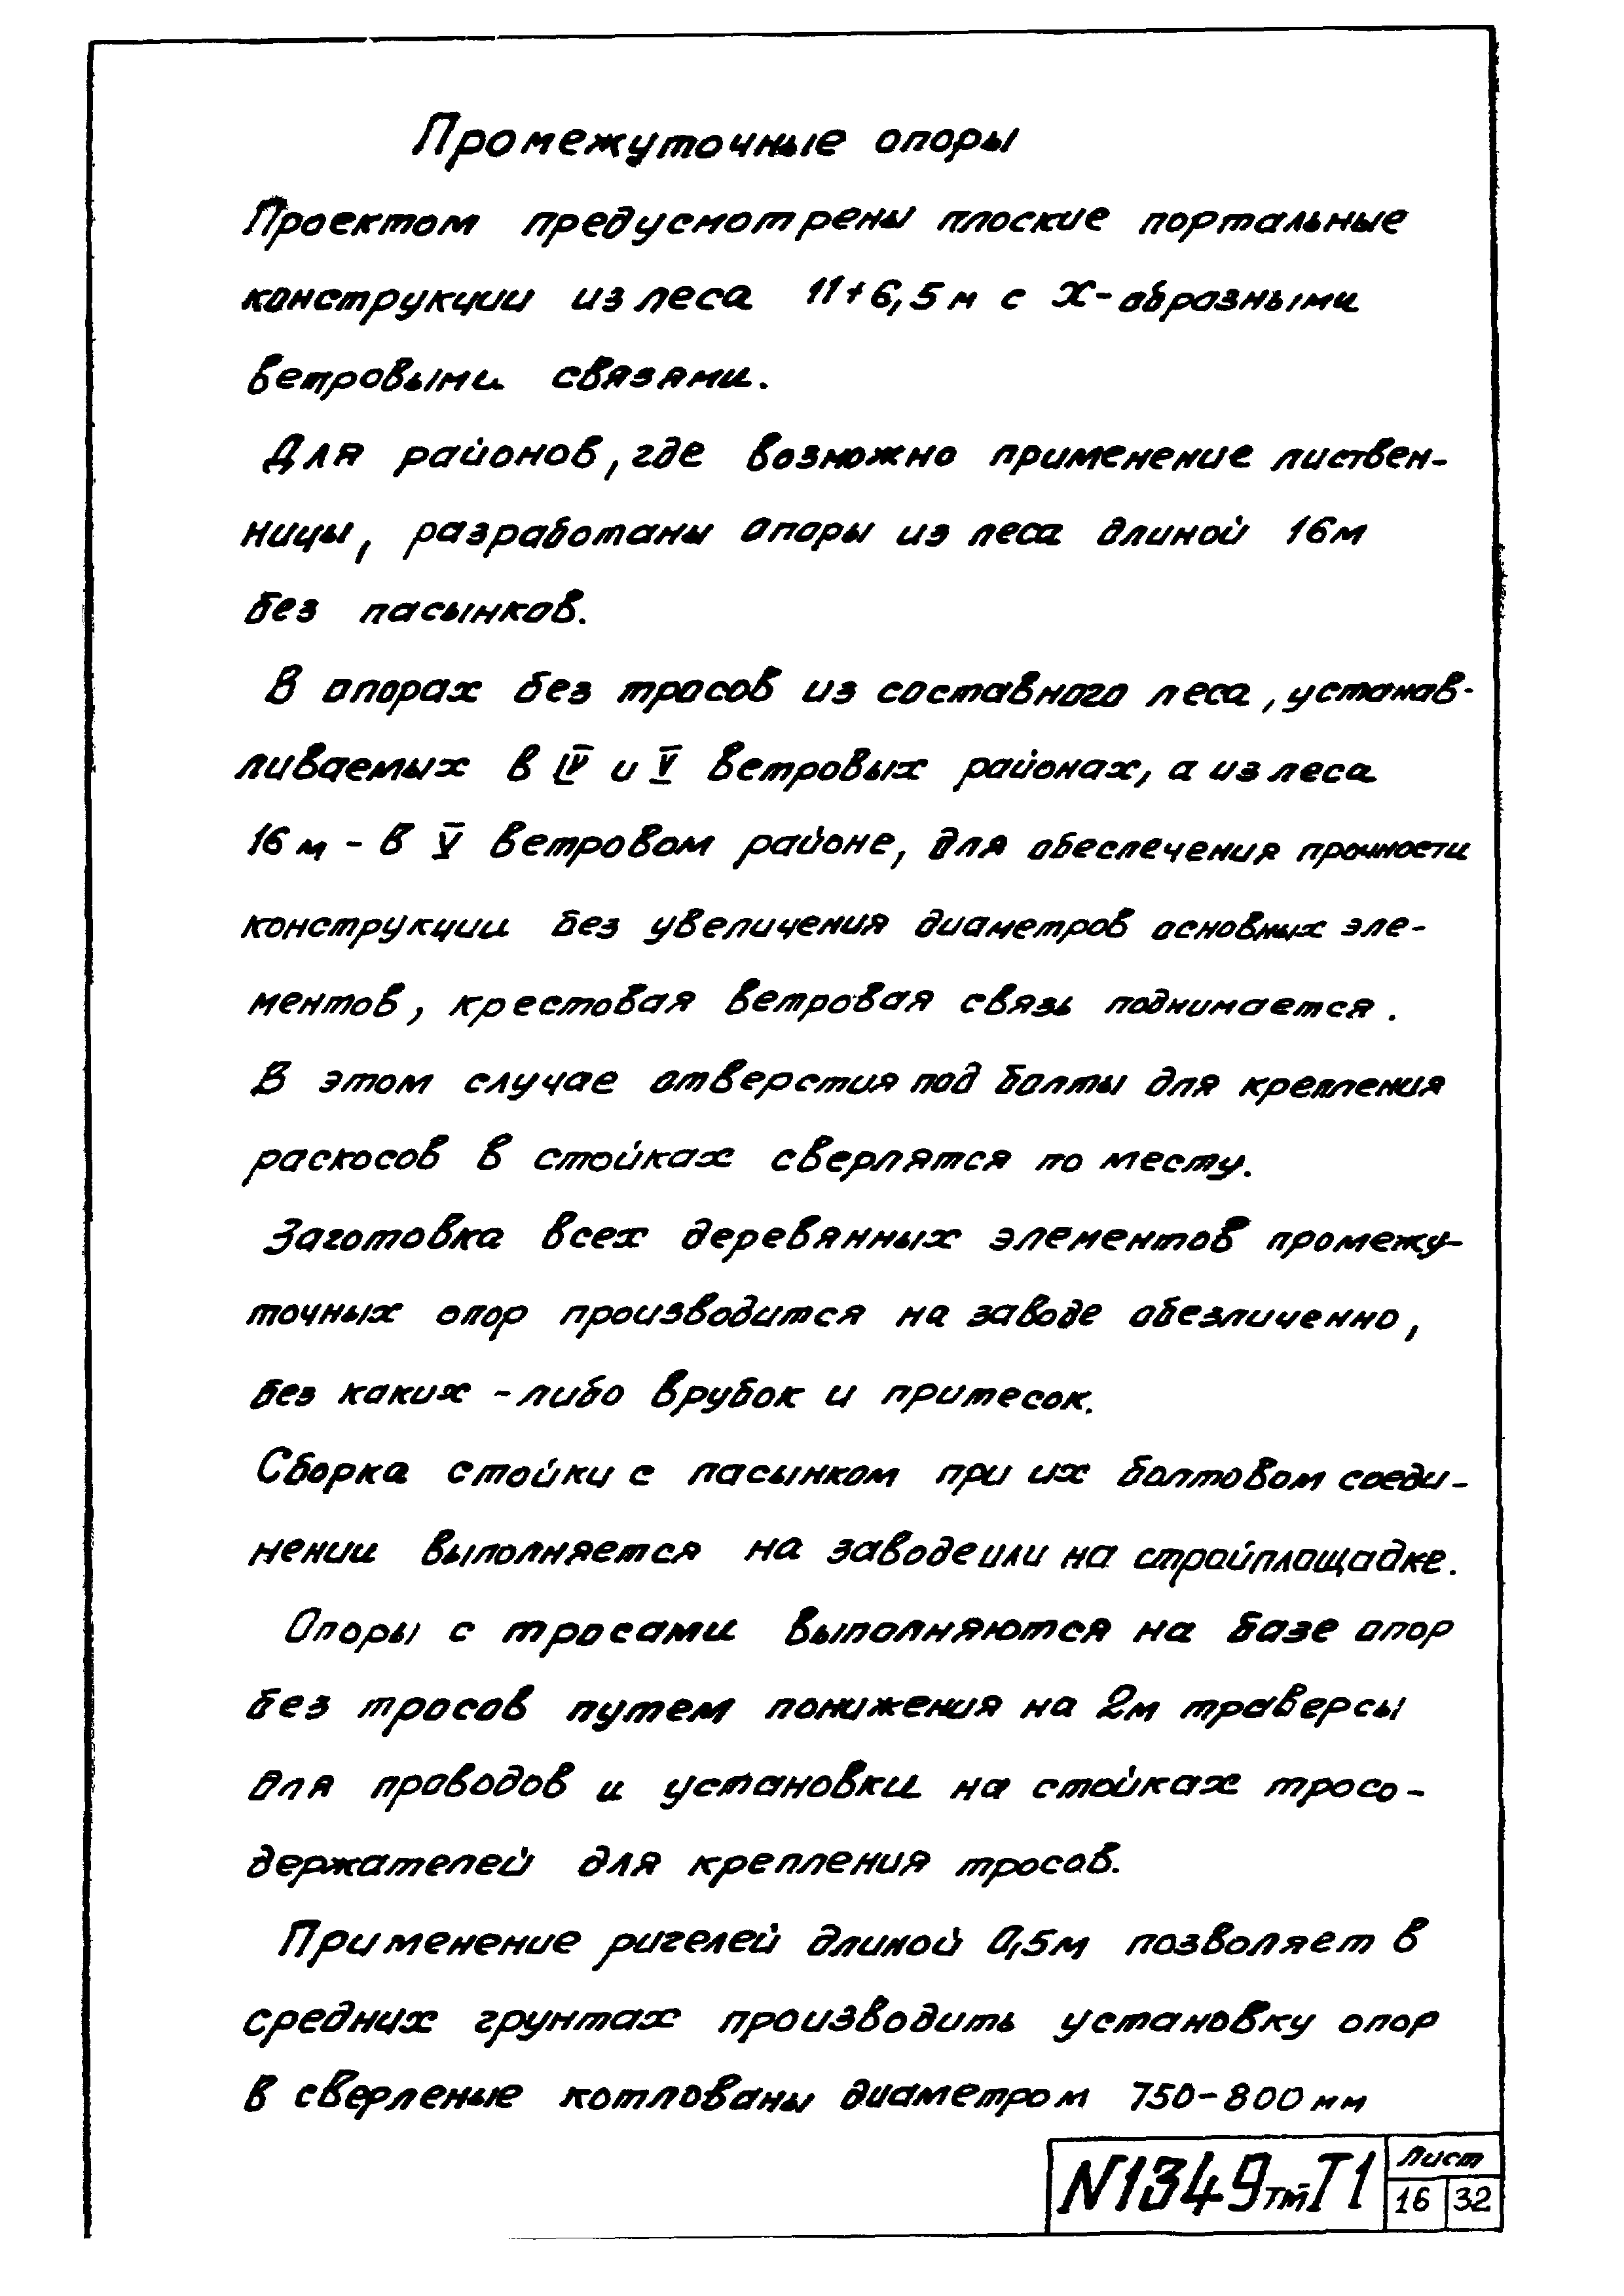 Промежуточные опоры
Проектом предусмотрены плоские портальные
конструкции из леса 11+6,5 м с Х-образными
ветровыми связями.
Для районов, где возможно применение листвен-
ницы, разработаны опоры из леса длиной 16м
без пасынков.
В опорах без тросов из составного леса, устанав-
ливаемых в IV и V ветровых районах, а из леса
16 м - в V ветровом районе, для обеспечения прочности
конструкции без увеличения диаметров основных эле-
ментов, крестовая ветровая связь поднимается.
В этом случае отверстия под болты для крепления
раскосов в стойках сверлятся по месту.
Заготовка всех деревянных элементов промежу-
точных опор производится на заводе обезличенно,
без каких-либо врубок и притесок.
Сборка стойки с пасынком при их болтовом соеди-
нении выполняется на заводе или на стройплощадке.
Опоры с тросами выполняются на базе опор
без тросов путем понижения на 2м траверсы
для проводов и установки на стойках тросо-
держателей для крепления тросов.
Применение ригелей длиной 0,5м позволяет в
средних грунтах производить установку опор
в сверленые котлованы диаметром 750-800 мм
N1349тм-Т1
Лист
16 32